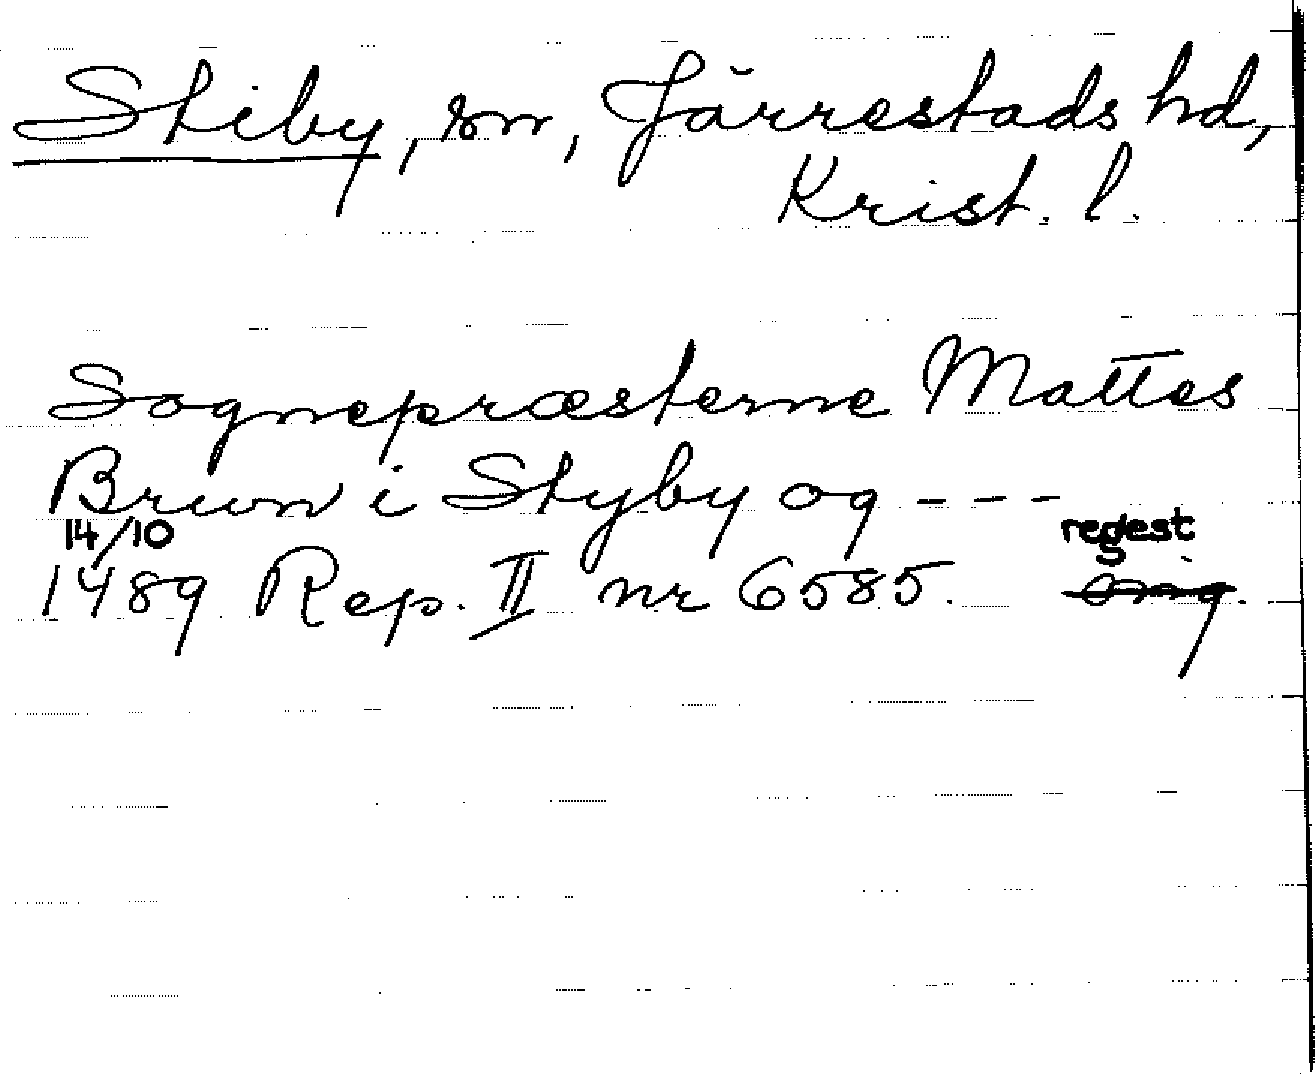 Stiby, sn, Järrestads hd,
Krist. l.
Sognepræsterne Mattes
Brwn i Styby og - - -
14/10
regest
1489 Rep. II nr 6585.